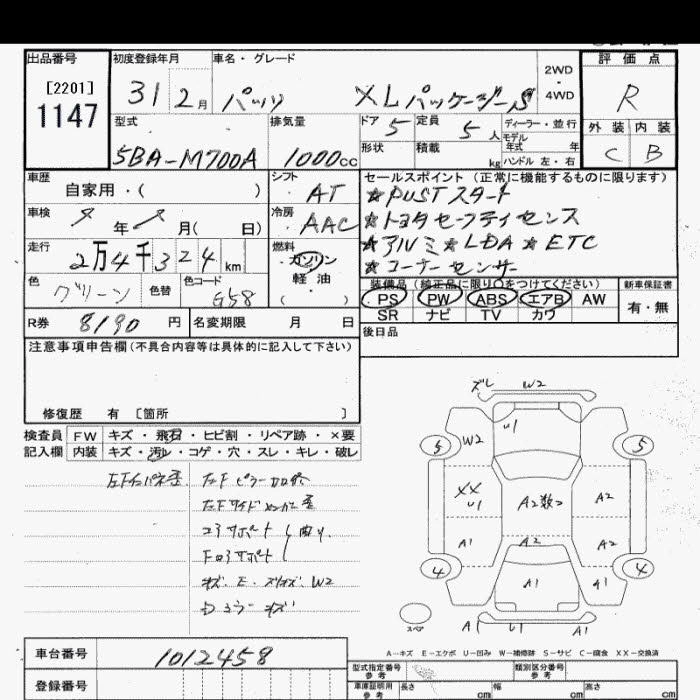 出品番号 初度登録年月 車名・グレード 2WD・4WD 評価点
[2201] 1147 31 2月 パッソ XLパッケージS R
型式 排気量 ドア 5 定員 5人 ディーラー・並行 外装 内装
5BA-M700A 1000cc 形状 積載 kg モデル年式 年 ハンドル 左・右 C B
車歴 自家用・( ) シフト AT セールスポイント(正常に機能するものに限ります)
★PUSTスタート
車検 年 月( 日) 冷房 AAC ★トヨタセーフティセンス
走行 2万4千324km 燃料 ガソリン ★アルミ★LDA★ETC
色 グリーン 色替 色コード G58 軽油 ( ) ★コーナーセンサー
装備品(純正品に限り○をつけてください) 新車保証書
PS PW ABS エアB AW 有・無
R券 8190円 名変期限 月 日 SR ナビ TV カワ
注意事項申告欄(不具合内容等は具体的に記入して下さい) 後日品
修復歴 有 〔箇所 〕
検査員 FW キズ・飛石・ヒビ割・リペア跡・×要
記入欄 内装 キズ・汚レ・コゲ・穴・スレ・キレ・破レ
ズレ W2
U1
5 W2 5
XX U1 A2数コ A2
A1 A2 A2
4 A1 A1 4
スペア A1 U1 A1
コアサポート 曲り
キズ・E・ズレ W2
A-キズ E-エクボ U-凹み W-補修跡 S-サビ C-腐食 XX-交換済
車台番号 1012458 型式指定番号 参考 類別区分番号 参考
登録番号 車庫証明用 参考 長さ cm 幅 cm 高さ cm